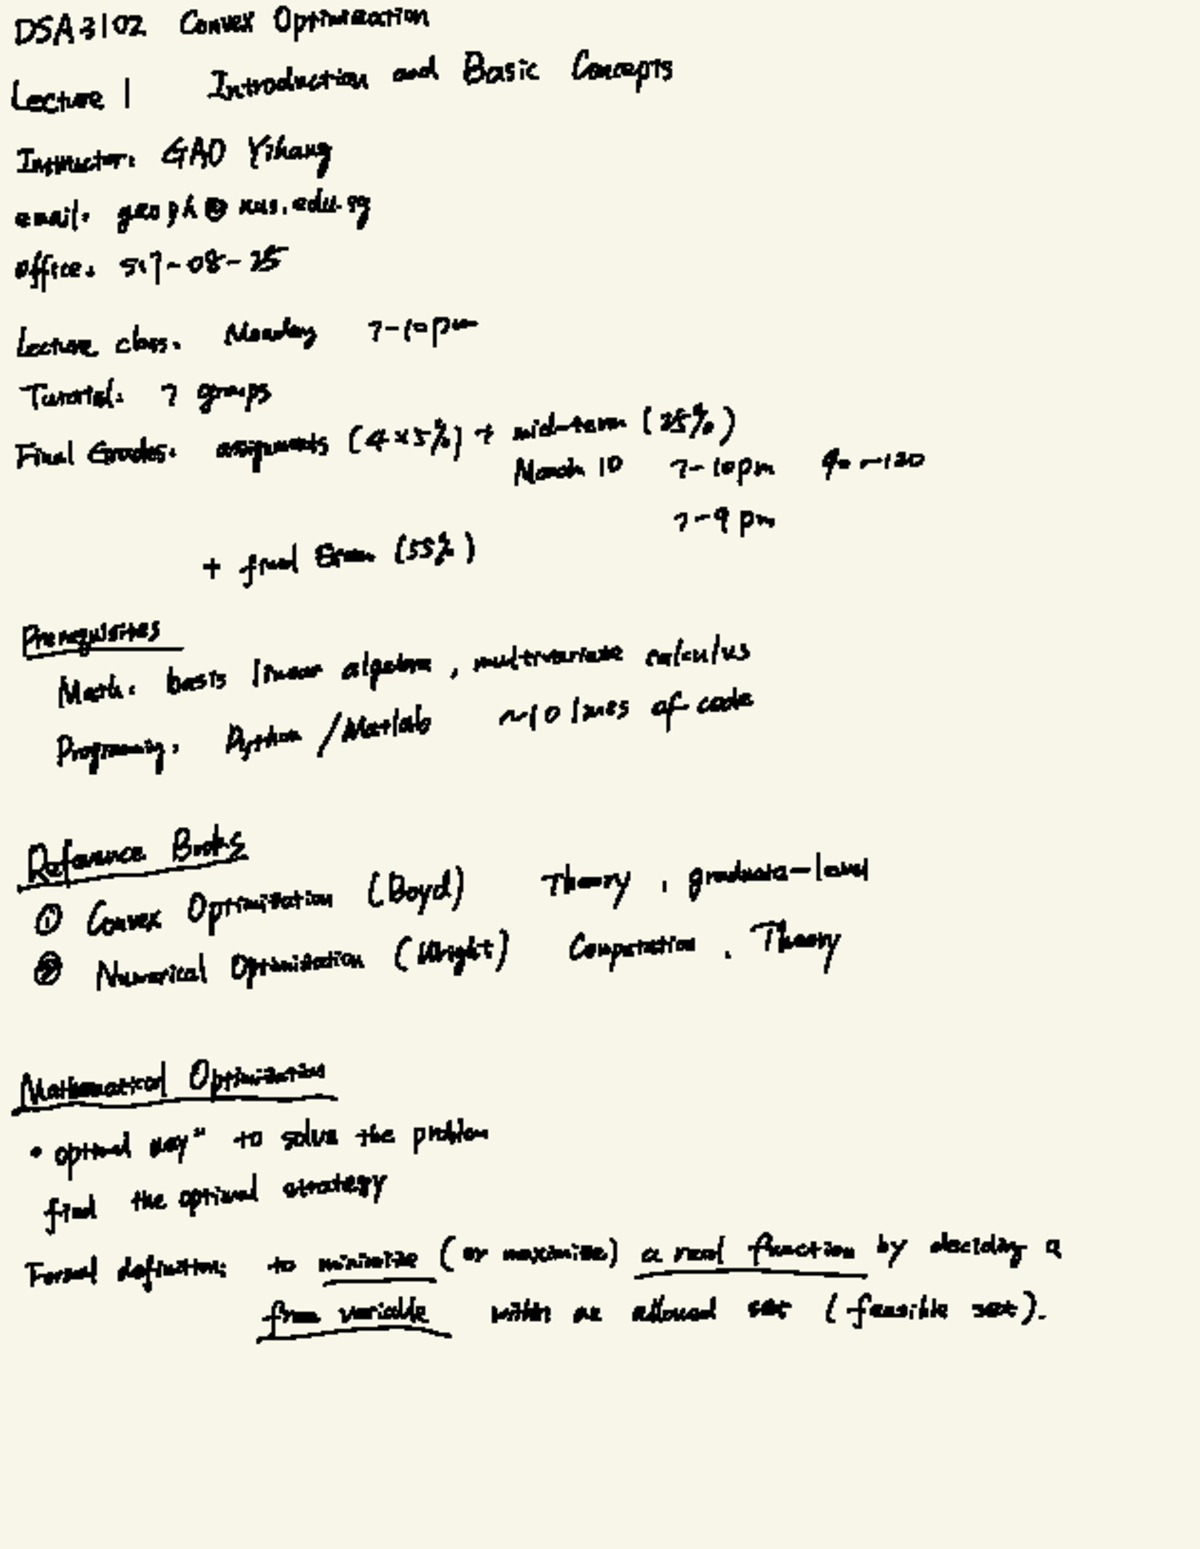 DSA3102 Convex Optimization
Lecture 1 Introduction and Basic Concepts
Instructor: GAO Yihang
email: @nus.edu.sg
office: S17-08-25
Lecture class: Monday 7-10pm
Tutorial: 7 groups
Final Grades: assignments (4×5%) + mid-term (25%)
March 10 7-10pm 90~120
7-9 pm
+ final Exam (55%)
Prerequisites
Math: basis linear algebra, multivariate calculus
Programing: Python/Matlab ~10 lines of code
Reference Books
① Convex Optimization (Boyd) Theory, graduate-level
② Numerical Optimization (Wright) Computation, Theory
Mathematical Optimization
"optimal way" to solve the problem
find the optimal strategy
Formal definition: to minimize (or maximize) a real function by deciding a
free variable within an allowed set (feasible set).